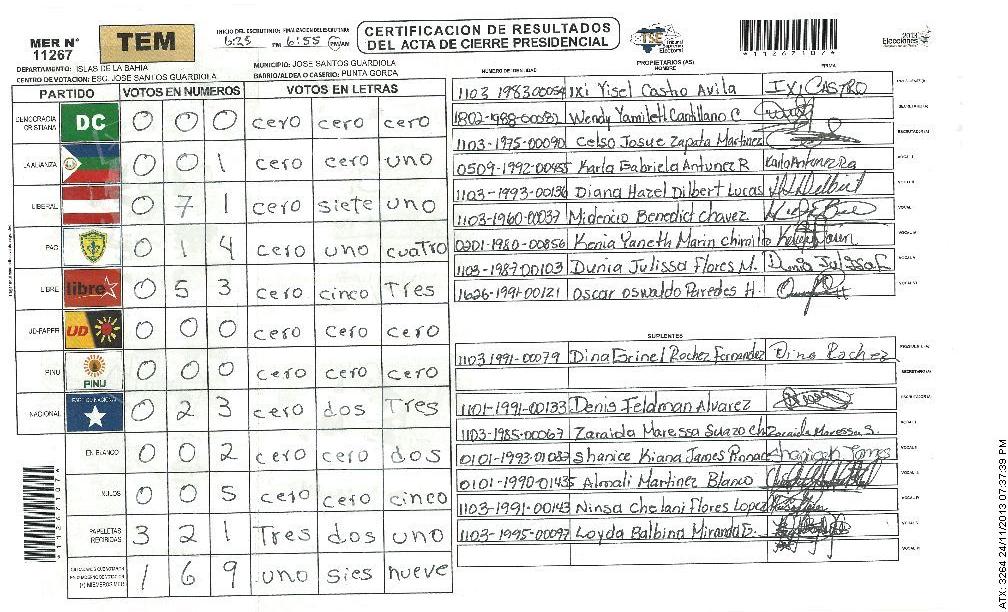 MER N° 11267
TEM
INICIO DEL ESCRUTINIO: 6:25 PM
FINALIZACION DEL ESCRUTINIO: 6:55 PM/AM
CERTIFICACION DE RESULTADOS
DEL ACTA DE CIERRE PRESIDENCIAL
TSE
2013
Elecciones
*1126710/*
DEPARTAMENTO: ISLAS DE LA BAHIA
MUNICIPIO: JOSE SANTOS GUARDIOLA
CENTRO DE VOTACION: ESC. JOSE SANTOS GUARDIOLA
BARRIO/ALDEA O CASERIO: PUNTA GORDA
PARTIDO VOTOS EN NUMEROS VOTOS EN LETRAS
DEMOCRACIA CRISTIANA DC 0 0 0 cero cero cero
LA ALIANZA 0 0 1 cero cero uno
LIBERAL 0 7 1 cero siete uno
PAC 0 1 4 cero uno cuatro
LIBRE libre 0 5 3 cero cinco Tres
UD-FAPER UD 0 0 0 cero cero cero
PINU PINU 0 0 0 cero cero cero
NACIONAL 0 2 3 cero dos Tres
EN BLANCO 0 0 2 cero cero dos
NULOS 0 0 5 cero cero cinco
PAPELETAS RECIBIDAS 3 2 1 Tres dos uno
1 6 9 uno sies nueve
PROPIETARIOS (AS)
NUMERO DE IDENTIDAD NOMBRE FIRMA
1103 1983 00054 Ixi Yisel Castro Avila IXI CASTRO
1802-1988-00082 Wendy Yamileth Cantillano C
1103-1975-00090 Celso Josue Zapata Martinez
0509-1992-00455 Karla Gabriela Antunez R Karla Antunez Ra
1103-1993-00136 Diana Hazel Dilbert Lucas
1103-1960-00037 Midencio Benedict chavez
0201-1980-00856 Kenia Yaneth Marin
1103-1987-00103 Dunia Julissa Flores M. Dunia Julissa F.
1626-1991-00121 Oscar Oswaldo Paredes H.
SUPLENTES
1103 1991-00079 Dina Grinel Rochez Fernandez Dina Rochez
1101-1991-00133 Denis Feldman Alvarez
1103-1985-00067 Zaraida Maressa Suazo Ch Zaraida Maressa S.
0101-1993-01087 Shanice Kiana James
0101-1990-01435 Almali Martinez Blanco
1103-1991-00143 Ninsa Chelani Flores Lopez
1103-1995-00097 Loyda Balbina Miranda G.
ATX: 3264 24/11/2013 07:37:39 PM